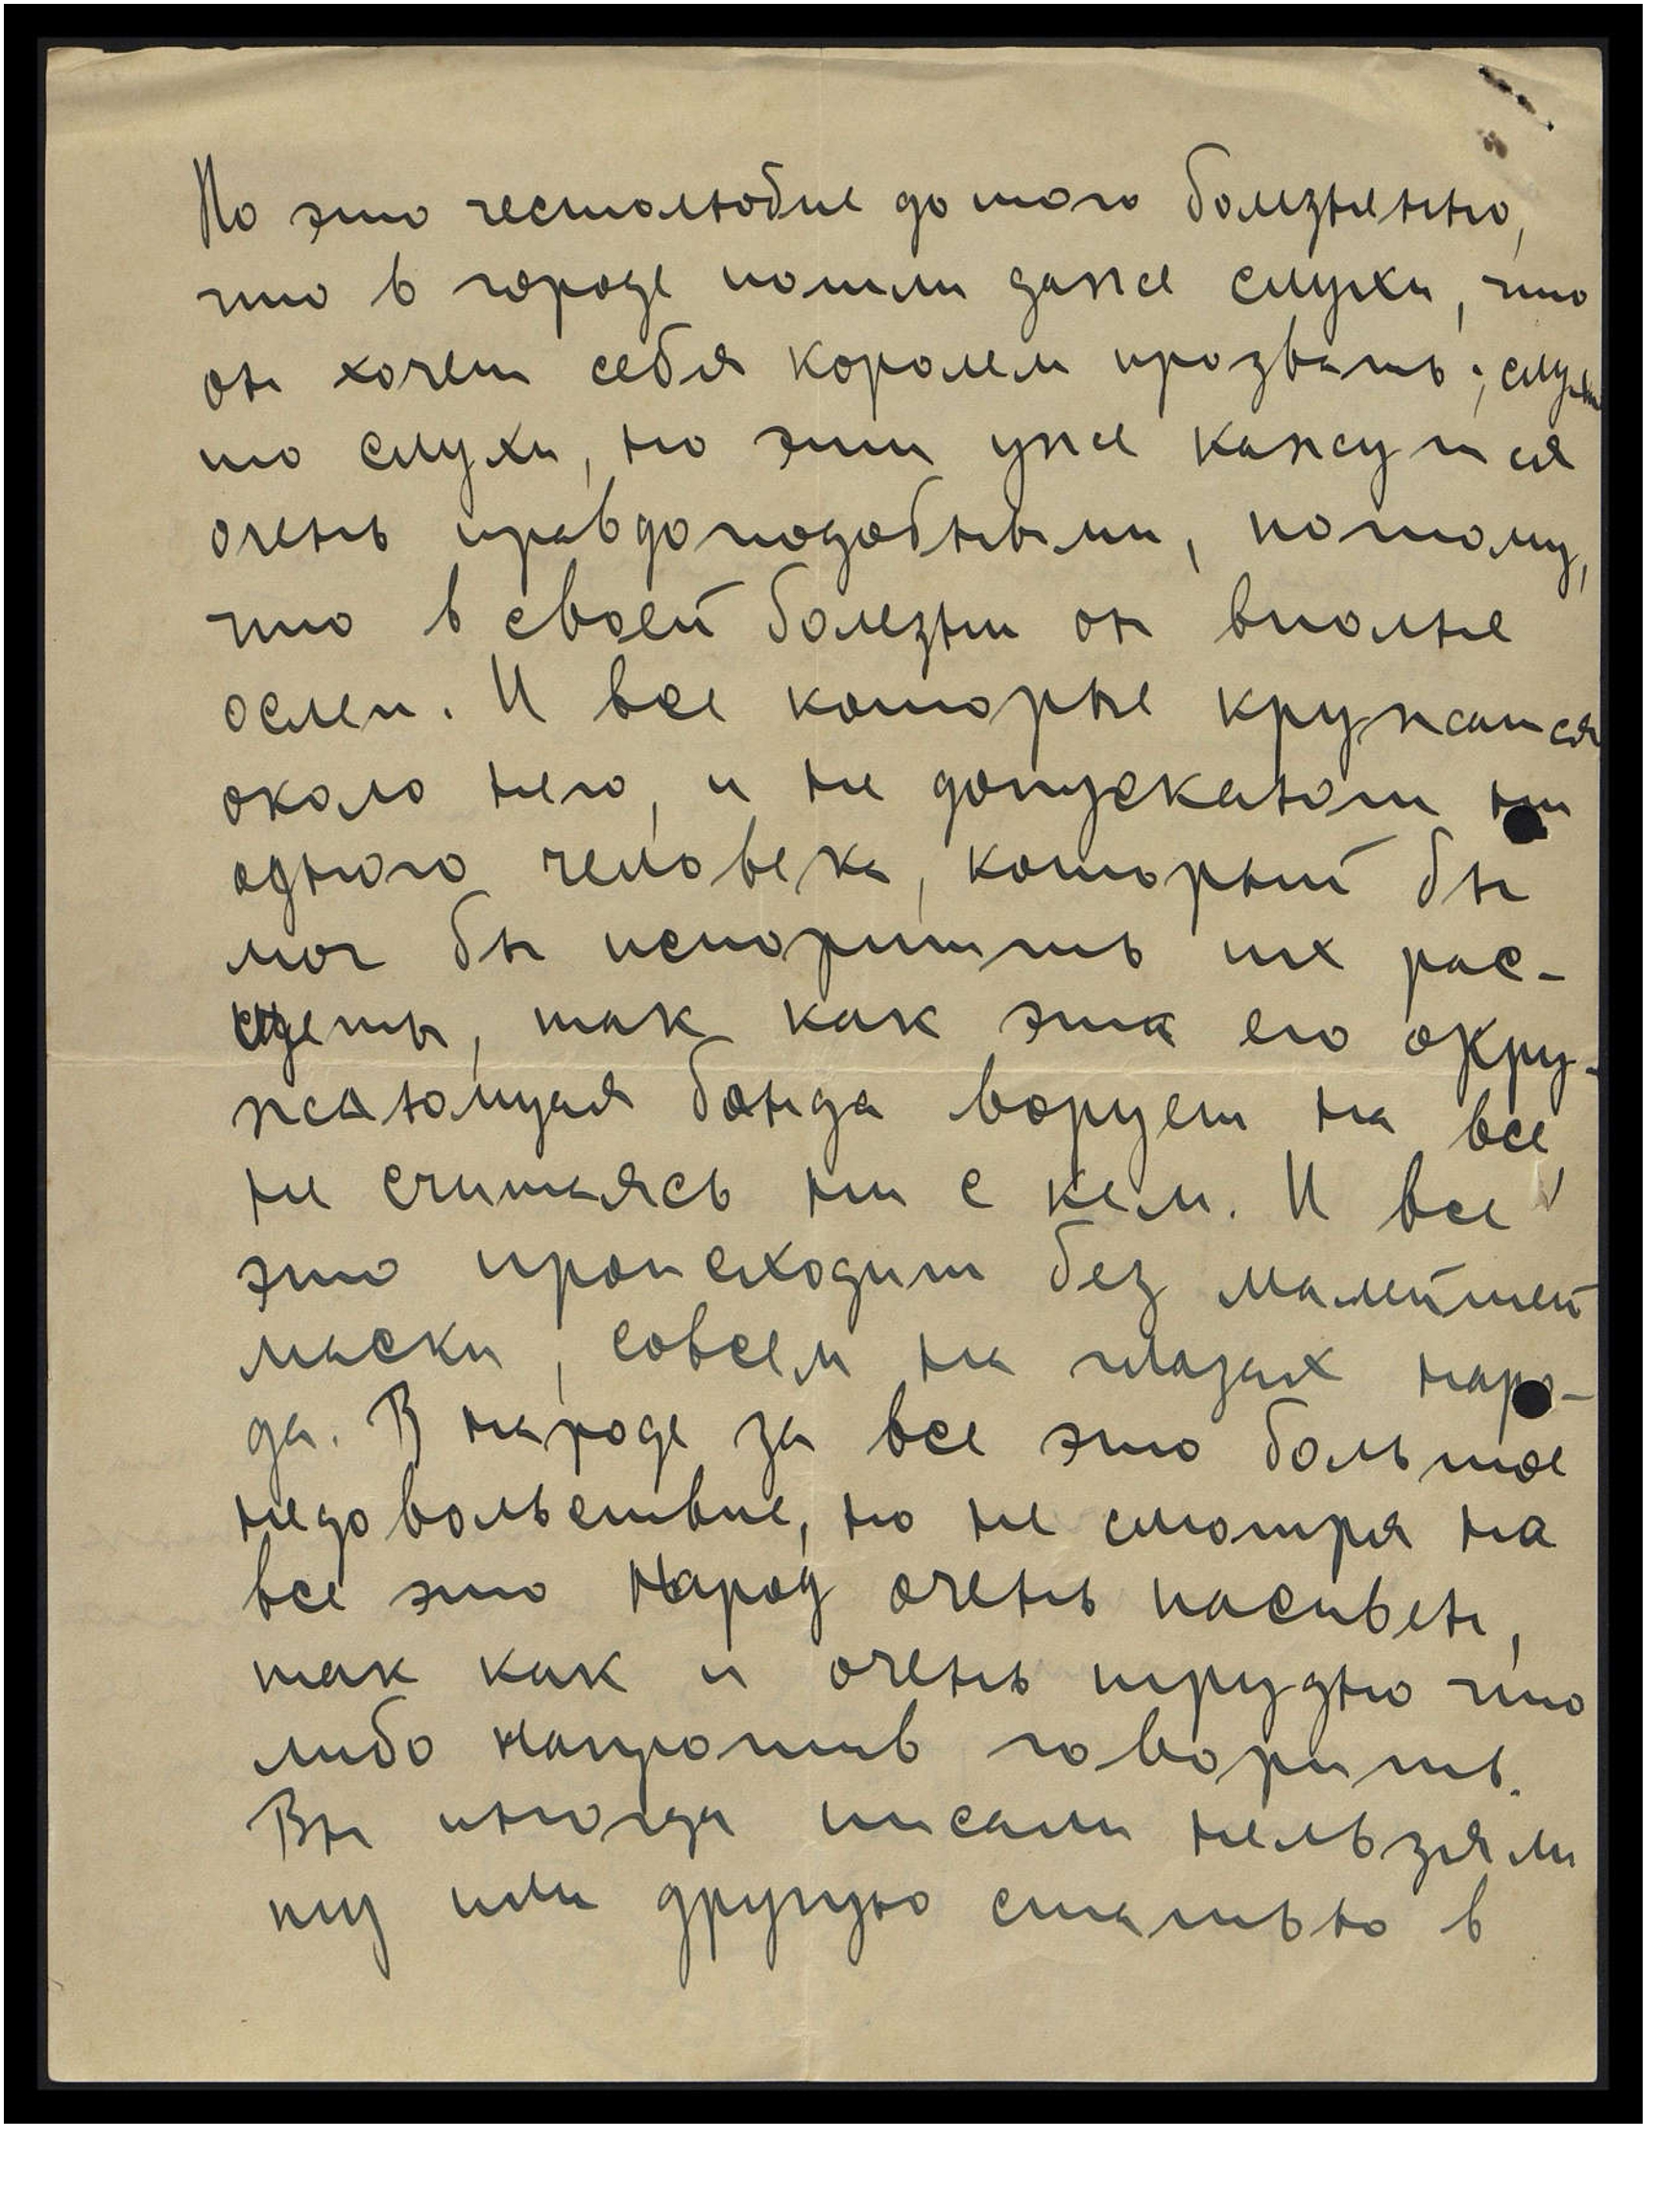 Но это честолюбие до того болезненно,
что в городе пошли даже слухи, что
он хочет себя королем прозвать; слухи
то слухи, но эти уже кажутся
очень правдоподобными, потому,
что в своей болезни он вполне
ослеп. И все которые кружатся
около него, и не допускают ни
одного человека, который бы
мог бы испортить их рас-
щеты, так как эта его окру-
жающая банда ворует на все
не считаясь ни с кем. И все
это происходит без малейшей
маски, совсем на глазах наро-
да. В народе за все это большое
недовольствие, но не смотря на
все это народ очень пасивен,
так как и очень трудно что
либо напротив говорить.
Вы иногда писали нельзя ли
ту или другую статью в